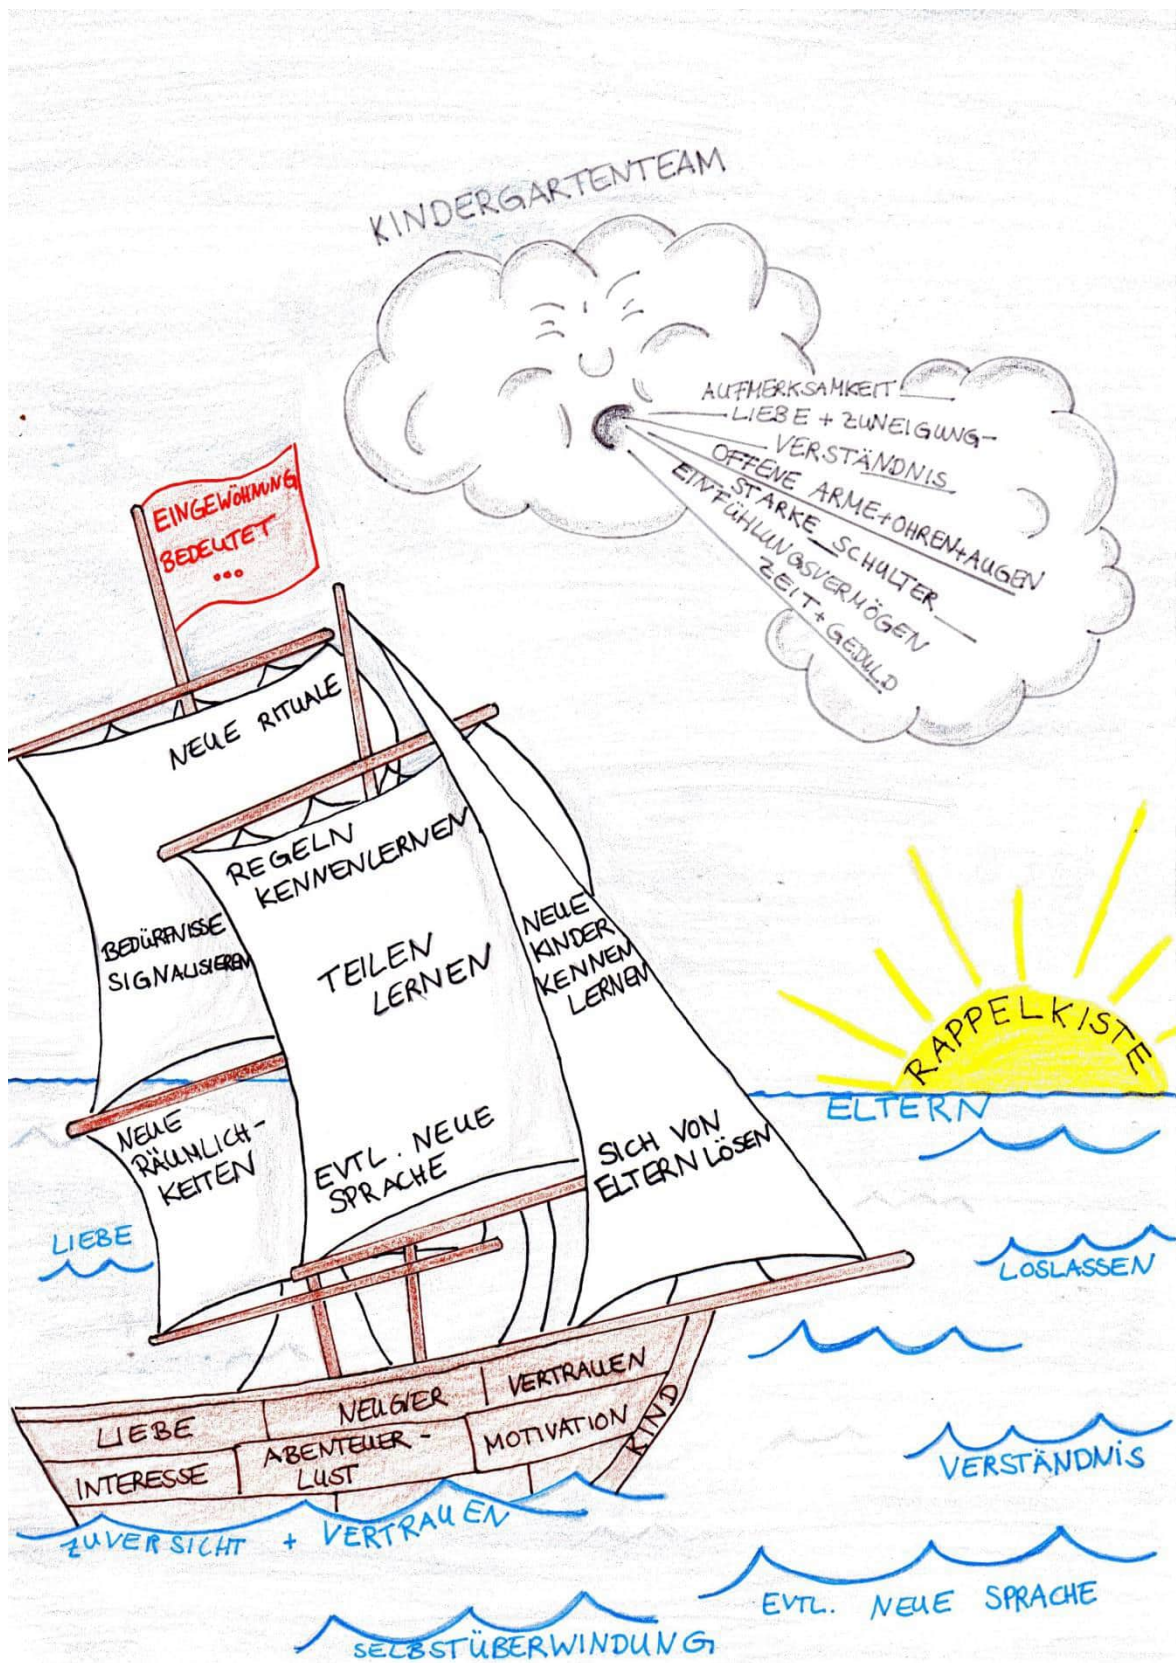 KINDERGARTENTEAM
AUFMERKSAMKEIT
LIEBE + ZUNEIGUNG
VERSTÄNDNIS
OFFENE ARME+OHREN+AUGEN
STARKE SCHULTER
EINFÜHLUNGSVERMÖGEN
ZEIT+GEDULD
EINGEWÖHNUNG
BEDEUTET
...
NEUE RITUALE
REGELN
KENNENLERNEN
BEDÜRFNISSE
SIGNALISIEREN
TEILEN
LERNEN
NEUE
KINDER
KENNEN
LERNEN
NEUE
RÄUMLICH-
KEITEN
EVTL. NEUE
SPRACHE
SICH VON
ELTERN LÖSEN
RAPPELKISTE
ELTERN
LIEBE
LOSLASSEN
LIEBE
NEUGIER
VERTRAUEN
INTERESSE
ABENTEUER-
LUST
MOTIVATION
KIND
VERSTÄNDNIS
ZUVERSICHT + VERTRAUEN
EVTL. NEUE SPRACHE
SELBSTÜBERWINDUNG